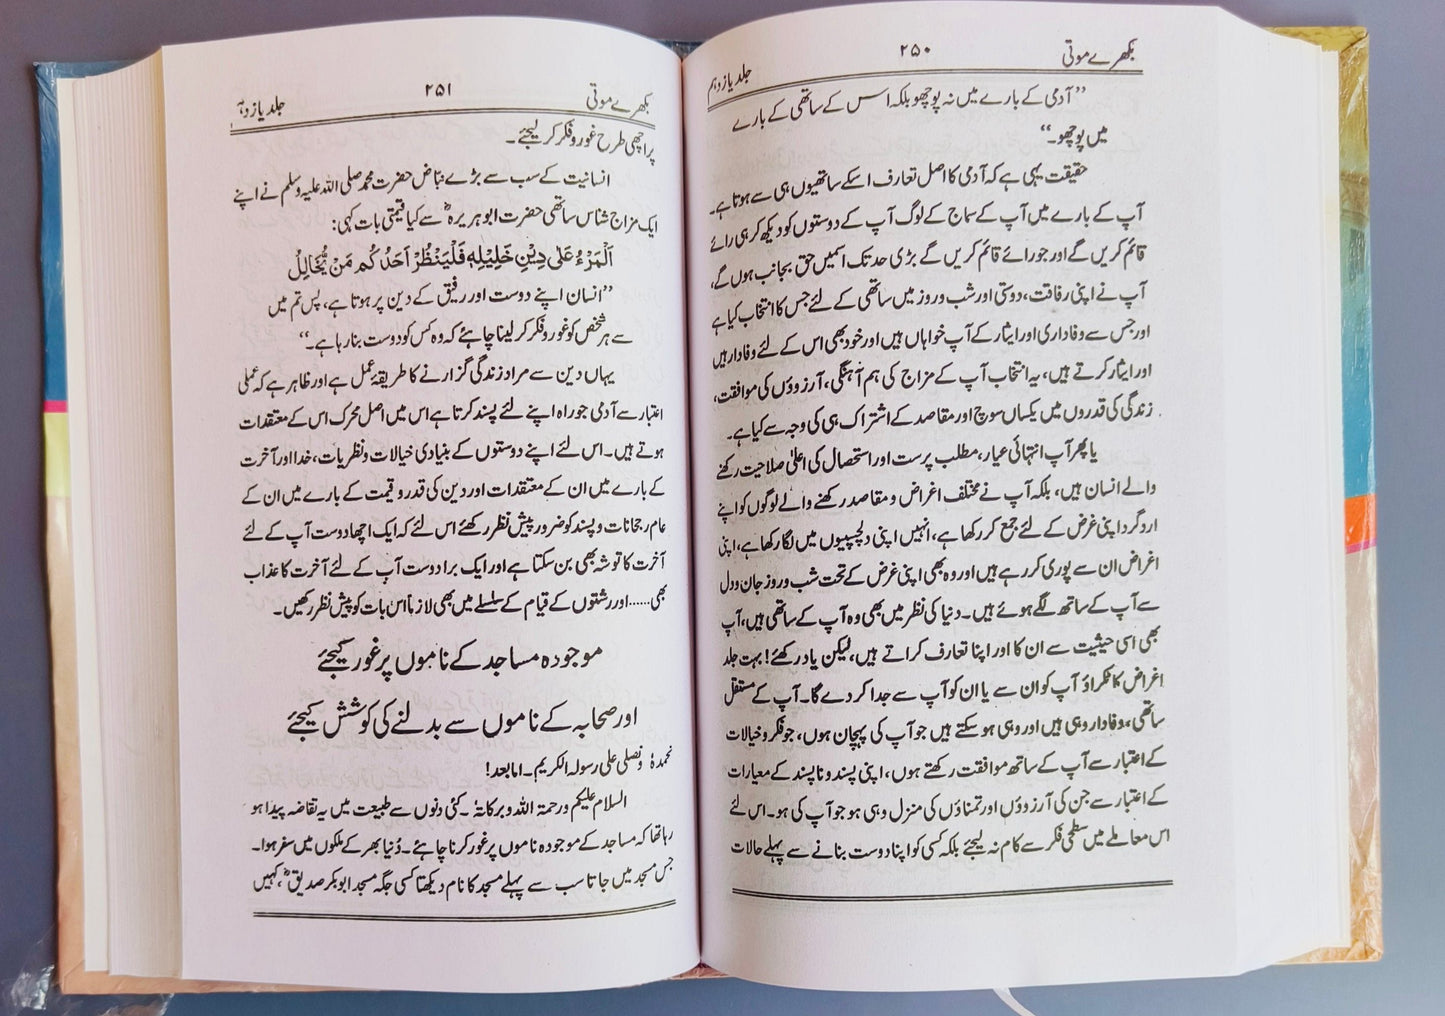 بکھرے موتی
۲۵۰
جلد یازدہم
”آدمی کے بارے میں نہ پوچھو بلکہ اس کے ساتھی کے بارے
میں پوچھو۔“
حقیقت یہی ہے کہ آدمی کا اصل تعارف اسکے ساتھیوں ہی سے ہوتا ہے۔
آپ کے بارے میں آپ کے سماج کے لوگ آپ کے دوستوں کو دیکھ کر ہی رائے
قائم کریں گے اور جو رائے قائم کریں گے بڑی حد تک اسمیں حق بجانب ہوں گے،
آپ نے اپنی رفاقت، دوستی اور شب و روز میں ساتھی کے لئے جس کا انتخاب کیا ہے
اور جس سے وفاداری اور ایثار کے آپ خواہاں ہیں اور خود بھی اس کے لئے وفادار ہیں
اور ایثار کرتے ہیں، یہ انتخاب آپ کے مزاج کی ہم آہنگی، آرزوؤں کی موافقت،
زندگی کی قدروں میں یکساں سوچ اور مقاصد کے اشتراک ہی کی وجہ سے کیا ہے۔
یا پھر آپ انتہائی عیار، مطلب پرست اور استحصال کی اعلیٰ صلاحیت رکھنے
والے انسان ہیں، بلکہ آپ نے مختلف اغراض و مقاصد رکھنے والے لوگوں کو اپنے
اردگرد اپنی غرض کے لئے جمع کر رکھا ہے، انہیں اپنی دلچسپیوں میں لگا رکھا ہے، اپنی
اغراض ان سے پوری کر رہے ہیں اور وہ بھی اپنی غرض کے تحت شب و روز جان و دل
سے آپ کے ساتھ لگے ہوئے ہیں۔ دنیا کی نظر میں بھی وہ آپ کے ساتھی ہیں، آپ
بھی اسی حیثیت سے ان کا اور اپنا تعارف کراتے ہیں، لیکن یاد رکھئے! بہت جلد
اغراض کا ٹکراؤ آپ کو ان سے یا ان کو آپ سے جدا کر دے گا۔ آپ کے مستقل
ساتھی، وفادار وہی ہیں اور وہی ہو سکتے ہیں جو آپ کی پہچان ہوں، جو فکر و خیالات
کے اعتبار سے آپ کے ساتھ موافقت رکھتے ہوں، اپنی پسند و ناپسند کے معیارات
کے اعتبار سے جن کی آرزوؤں اور تمناؤں کی منزل وہی ہو جو آپ کی ہو۔ اس لئے
اس معاملے میں سطحی فکر سے کام نہ لیجئے بلکہ کسی کو اپنا دوست بنانے سے پہلے حالات
بکھرے موتی
۲۵۱
جلد یازدہم
پر اچھی طرح غور و فکر کر لیجئے۔
انسانیت کے سب سے بڑے نباض حضرت محمد صلی اللہ علیہ وسلم نے اپنے
ایک مزاج شناس ساتھی حضرت ابو ہریرہؓ سے کیا قیمتی بات کہی:
اَلْمَرْءُ عَلٰی دِیْنِ خَلِیْلِهٖ فَلْیَنْظُرْ اَحَدُکُمْ مَنْ یُّخَالِلُ
”انسان اپنے دوست اور رفیق کے دین پر ہوتا ہے، پس تم میں
سے ہر شخص کو غور و فکر کر لینا چاہئے کہ وہ کس کو دوست بنا رہا ہے۔“
یہاں دین سے مراد زندگی گزارنے کا طریقۂ عمل ہے اور ظاہر ہے کہ عملی
اعتبار سے آدمی جو راہ اپنے لئے پسند کرتا ہے اس میں اصل محرک اس کے معتقدات
ہوتے ہیں۔ اس لئے اپنے دوستوں کے بنیادی خیالات و نظریات، خدا اور آخرت
کے بارے میں ان کے معتقدات اور دین کی قدر و قیمت کے بارے میں ان کے
عام رجحانات و پسند کو ضرور پیش نظر رکھئے اس لئے کہ ایک اچھا دوست آپ کے لئے
آخرت کا توشہ بھی بن سکتا ہے اور ایک برا دوست آپ کے لئے آخرت کا عذاب
بھی ...... اور رشتوں کے قیام کے سلسلے میں بھی لازماً اس بات کو پیش نظر رکھیں۔
موجودہ مساجد کے ناموں پر غور کیجئے
اور صحابہ کے ناموں سے بدلنے کی کوشش کیجئے
نحمدہٗ ونصلی علی رسولہ الکریم۔ اما بعد!
السلام علیکم ورحمۃ اللہ وبرکاتہٗ۔ کئی دنوں سے طبیعت میں یہ تقاضہ پیدا ہو
رہا تھا کہ مساجد کے موجودہ ناموں پر غور کرنا چاہئے۔ دُنیا بھر کے ملکوں میں سفر ہوا۔
جس مسجد میں جاتا سب سے پہلے مسجد کا نام دیکھتا کسی جگہ مسجد ابوبکر صدیقؓ، کہیں